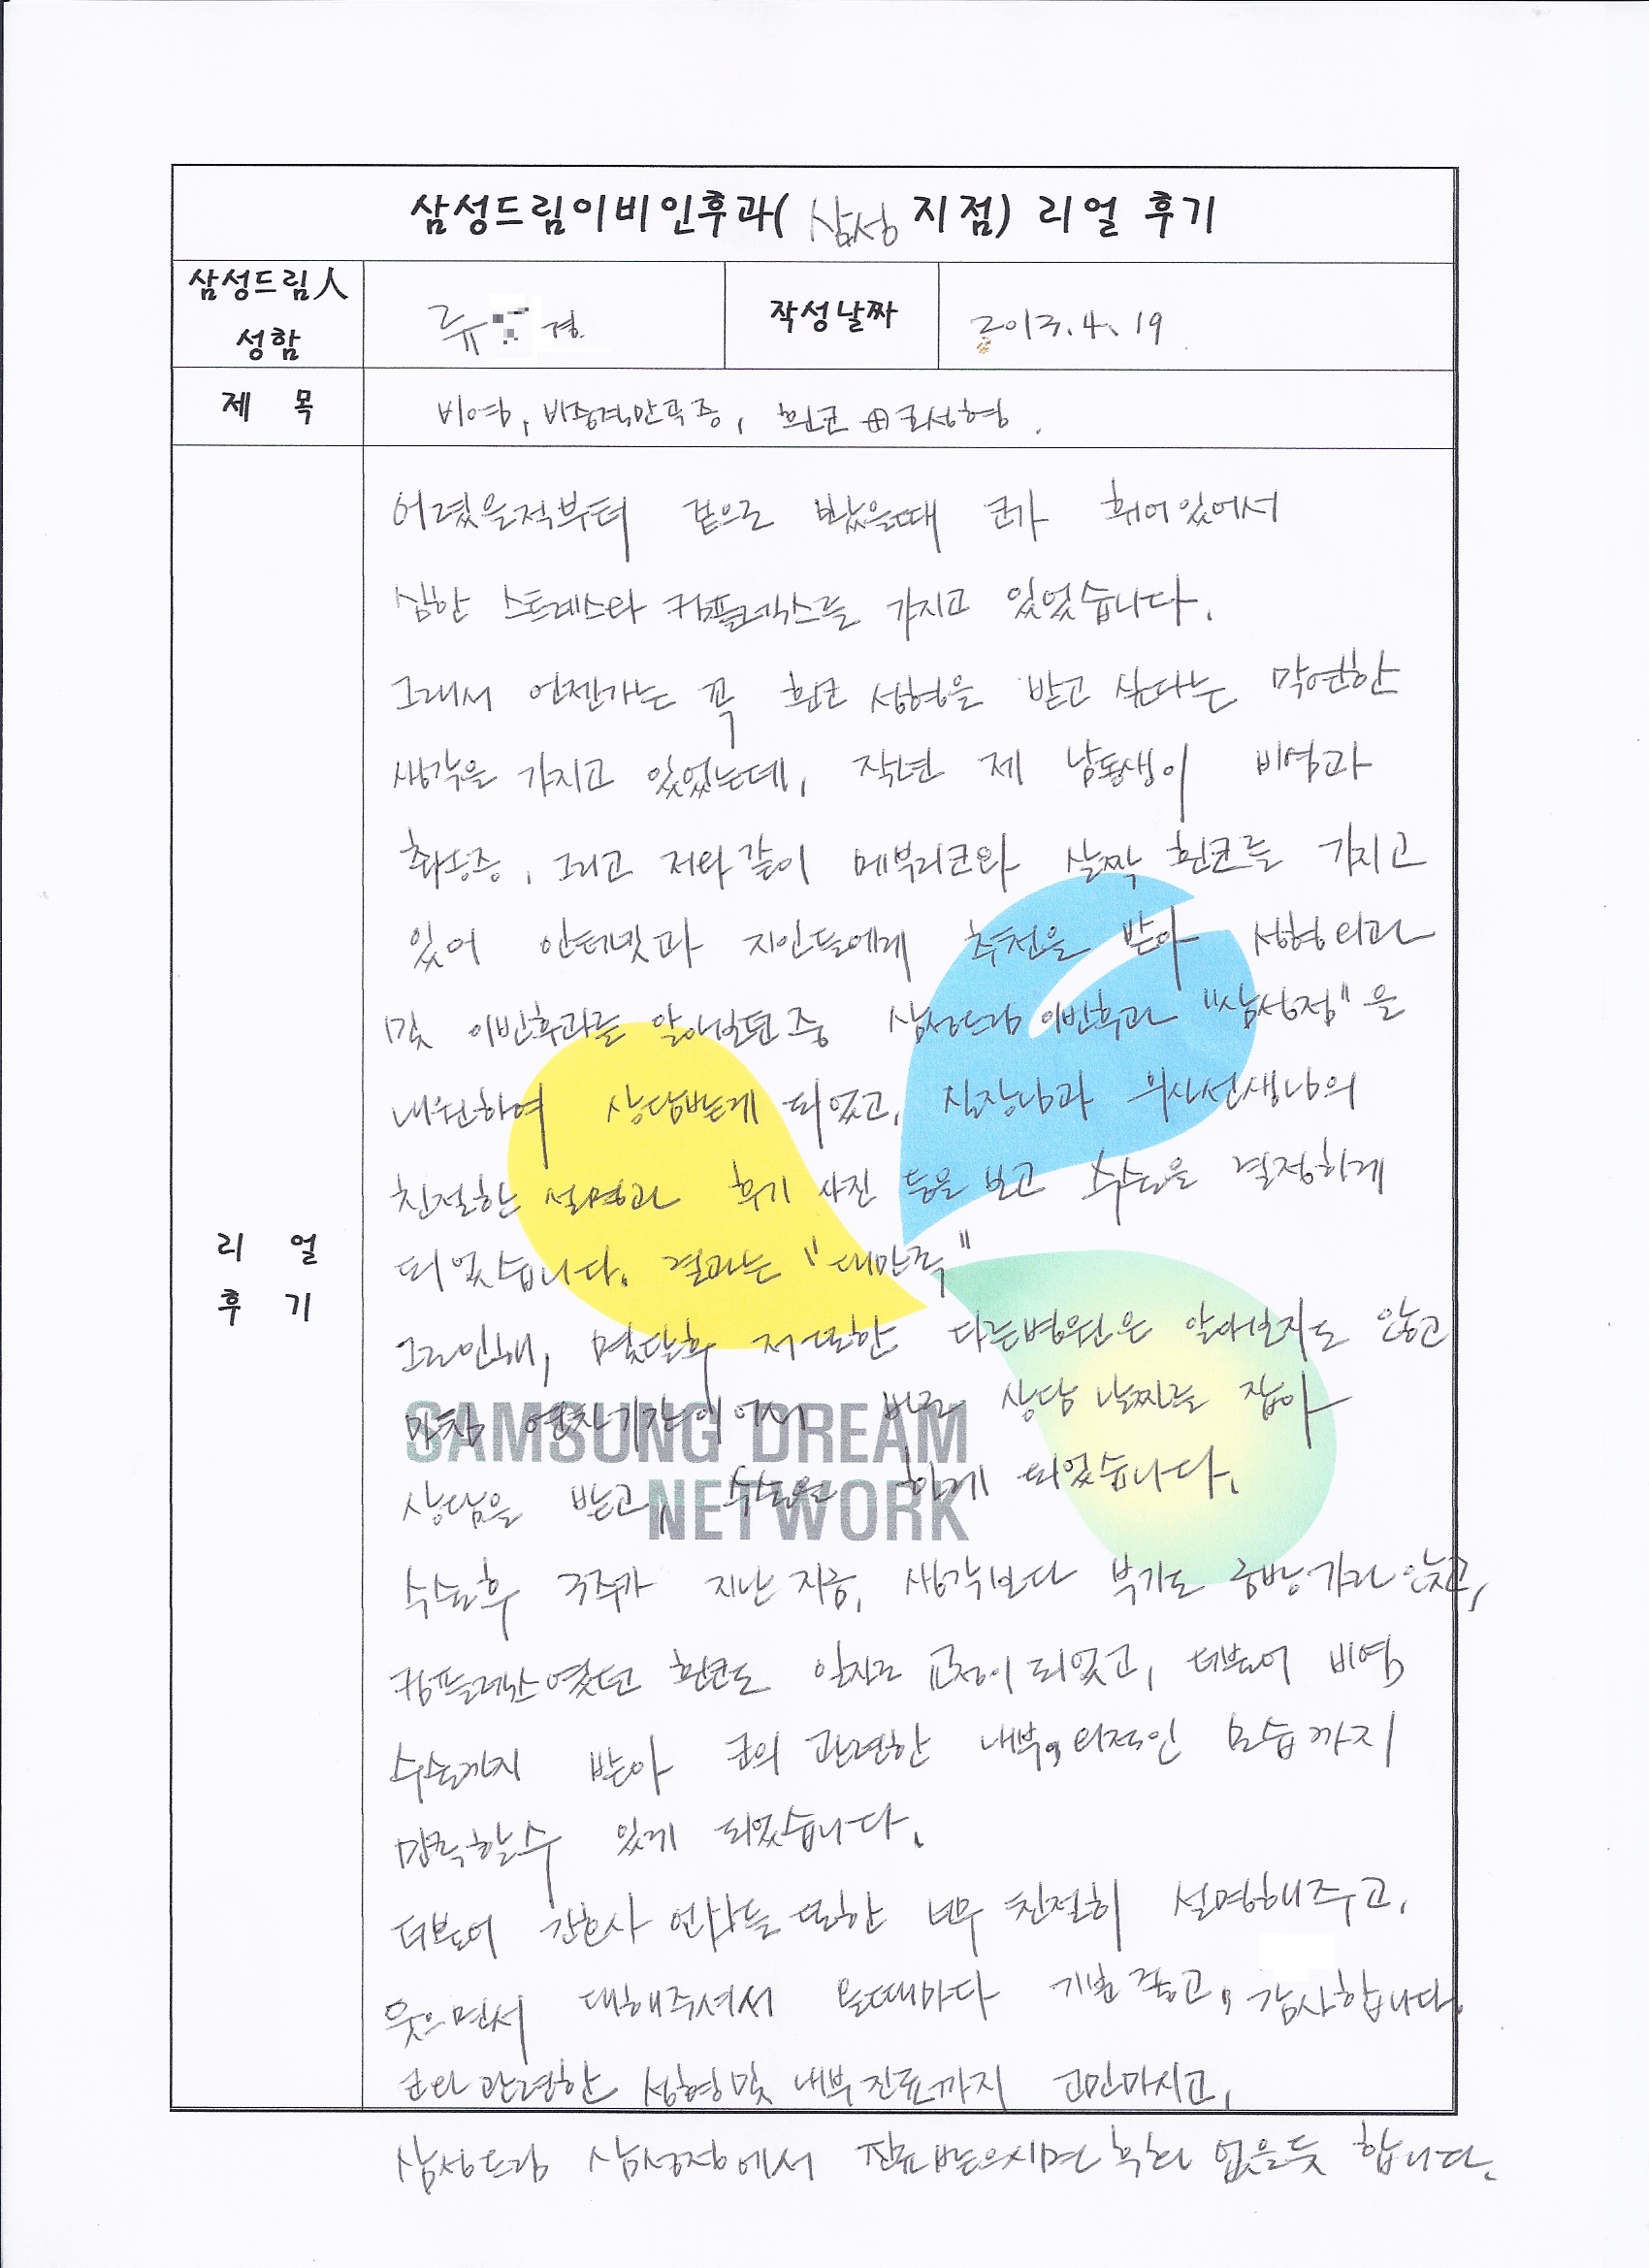 삼성드림이비인후과( 삼성 지점) 리얼 후기
삼성드림人 성함
류 경
작성날짜
2013.4.19
제 목
비염, 비중격만곡증, 휜코 코성형.
리 얼 후 기
어렸을적부터 겉으로 봤을때 코가 휘어있어서
심한 스트레스와 컴플렉스를 가지고 있었습니다.
그래서 언젠가는 꼭 휜코 성형을 받고 싶다는 막연한
생각을 가지고 있었는데, 작년 제 남동생이 비염과
축농증, 그리고 저와같이 메부리코와 살짝 휜코를 가지고
있어 인터넷과 지인들에게 추천을 받아 성형외과
및 이빈후과를 알아보던중 삼성드림 이빈후과 "삼성점"을
내원하여 상담받게 되었고, 실장님과 의사선생님의
친절한 설명과 후기 사진 등을 보고 수술을 결정하게
되었습니다. 결과는 "대만족"
그로인해, 몇달후 저또한 다른병원은 알아보지도 않고
마침 연차기간이어서 바로 상담 날짜를 잡아
상담을 받고, 수술을 하게 되었습니다.
수술후 3주가 지난 지금, 생각보다 붓기도 금방 가라앉고,
컴플렉스였던 휜코도 일자로 교정이 되었고, 더불어 비염
수술까지 받아 코의 관련한 내부,외적인 모습까지
만족할수 있게 되었습니다.
더불어 간호사 언니들 또한 너무 친절히 설명해주고,
웃으면서 대해주셔서 올때마다 기분좋고, 감사합니다.
코와 관련한 성형및 내부 진료까지 고민마시고,
삼성드림 삼성점에서 진료받으시면 후회 없을듯 합니다.
SAMSUNG DREAM
NETWORK